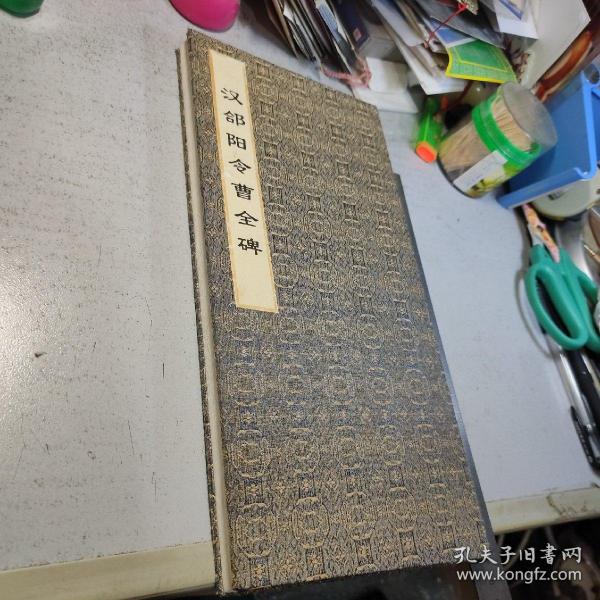 汉郃阳令曹全碑
孔夫子旧书网
www.kongfz.com